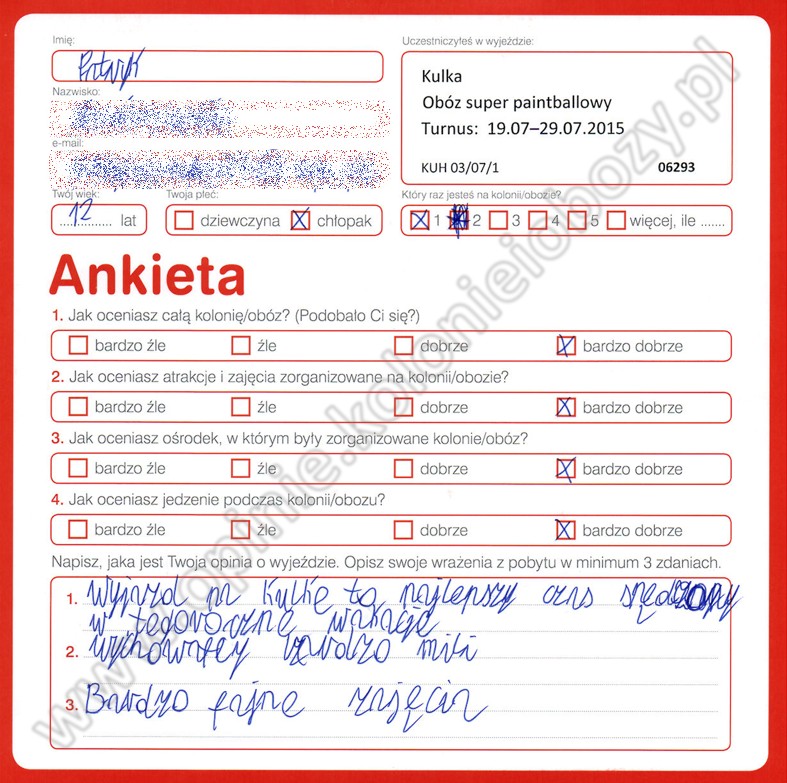 Imię:
Patryk
Uczestniczyłeś w wyjeździe:
Kulka
Obóz super paintballowy
Turnus: 19.07–29.07.2015
KUH 03/07/1 06293
Nazwisko:
e-mail:
Twój wiek:
12 lat
Twoja płeć:
dziewczyna chłopak
Który raz jesteś na kolonii/obozie?
1 2 3 4 5 więcej, ile .......
Ankieta
1. Jak oceniasz całą kolonię/obóz? (Podobało Ci się?)
bardzo źle źle dobrze bardzo dobrze
2. Jak oceniasz atrakcje i zajęcia zorganizowane na kolonii/obozie?
bardzo źle źle dobrze bardzo dobrze
3. Jak oceniasz ośrodek, w którym były zorganizowane kolonie/obóz?
bardzo źle źle dobrze bardzo dobrze
4. Jak oceniasz jedzenie podczas kolonii/obozu?
bardzo źle źle dobrze bardzo dobrze
Napisz, jaka jest Twoja opinia o wyjeździe. Opisz swoje wrażenia z pobytu w minimum 3 zdaniach.
1. Wyjazd na Kulkę to najlepszy czas spędzony
w tegoroczne wakacje
2. wychowawcy bardzo mili
3. Bardzo fajne zajęcia
www.opinie.kolonieiobozy.pl